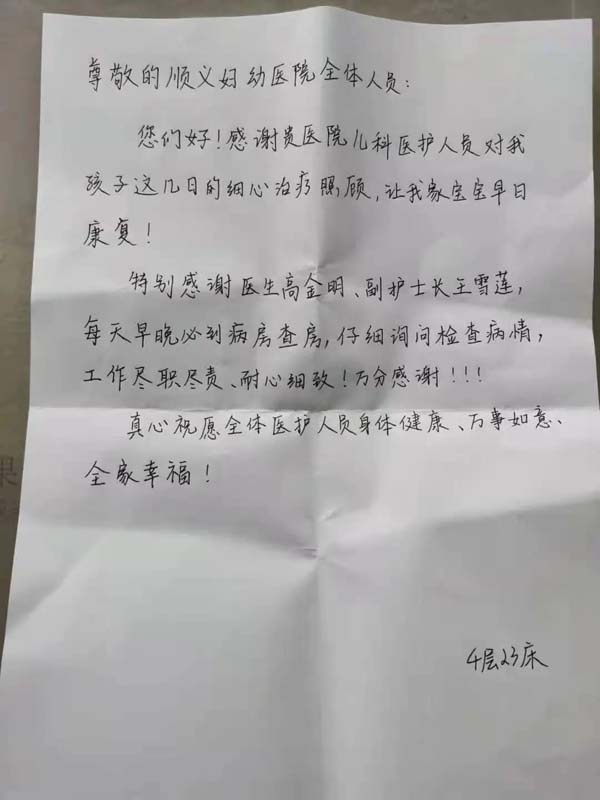 尊敬的顺义妇幼医院全体人员：
您们好！感谢贵医院儿科医护人员对我
孩子这几日的细心治疗照顾，让我家宝宝早日
康复！
特别感谢医生高金明、副护士长王雪莲，
每天早晚必到病房查房，仔细询问检查病情，
工作尽职尽责、耐心细致！万分感谢！！！
真心祝愿全体医护人员身体健康、万事如意、
全家幸福！
4层23床
果